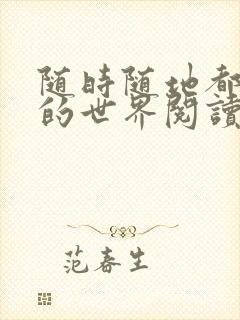 随時随地都
的世界閱讀
范春生